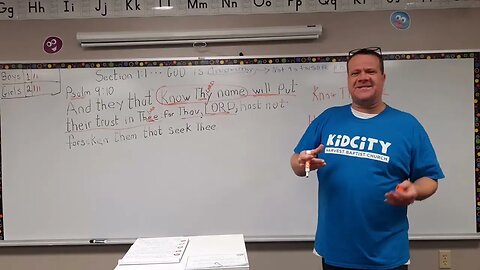 Gg Hh Ii Jj Kk Ll Mm Nn
Boys
Girls
Section 1:1... GOD is
Psalm 9:10
And they that Know Thy name will put
their trust in Thee for Thou, LORD, hast not
forsaken Them that seek Thee
Know Th
KiDCiTY
HARVEST BAPTIST CHURCH